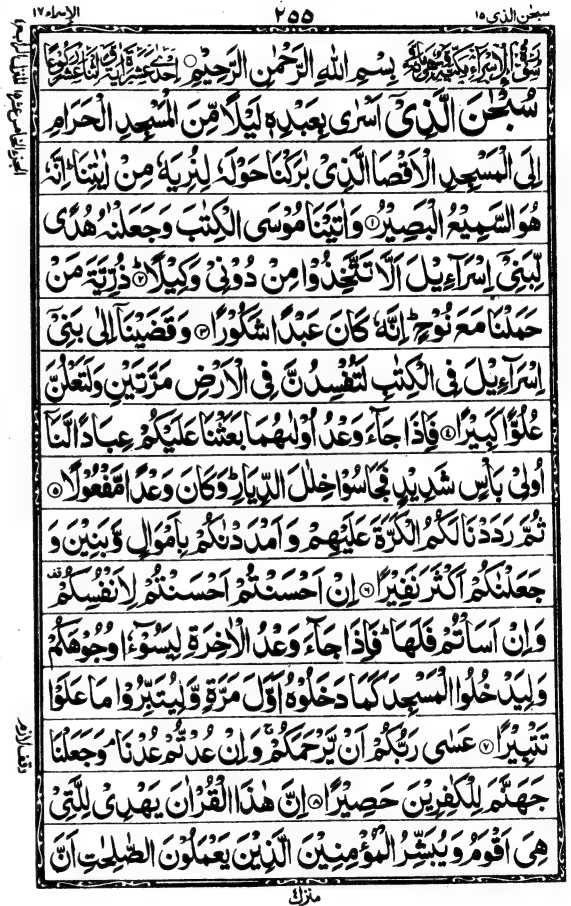 سبحن الذی ١٥ ٢٥٥ الإسراء ١٧
بِسْمِ اللهِ الرَّحْمٰنِ الرَّحِيْمِ
سُبْحٰنَ الَّذِيْٓ اَسْرٰى بِعَبْدِهٖ لَيْلًا مِّنَ الْمَسْجِدِ الْحَرَامِ
اِلَى الْمَسْجِدِ الْاَقْصَا الَّذِيْ بٰرَكْنَا حَوْلَهٗ لِنُرِيَهٗ مِنْ اٰيٰتِنَا ؕ اِنَّهٗ
هُوَ السَّمِيْعُ الْبَصِيْرُ ۝١ وَاٰتَيْنَا مُوْسَى الْكِتٰبَ وَجَعَلْنٰهُ هُدًى
لِّبَنِيْٓ اِسْرَآءِيْلَ اَلَّا تَتَّخِذُوْا مِنْ دُوْنِيْ وَكِيْلًا ؕ۝٢ ذُرِّيَّةَ مَنْ
حَمَلْنَا مَعَ نُوْحٍ ؕ اِنَّهٗ كَانَ عَبْدًا شَكُوْرًا ۝٣ وَقَضَيْنَآ اِلٰى بَنِيْٓ
اِسْرَآءِيْلَ فِي الْكِتٰبِ لَتُفْسِدُنَّ فِي الْاَرْضِ مَرَّتَيْنِ وَلَتَعْلُنَّ
عُلُوًّا كَبِيْرًا ۝٤ فَاِذَا جَآءَ وَعْدُ اُوْلٰىهُمَا بَعَثْنَا عَلَيْكُمْ عِبَادًا لَّنَآ
اُولِيْ بَاْسٍ شَدِيْدٍ فَجَاسُوْا خِلٰلَ الدِّيَارِ ؕ وَكَانَ وَعْدًا مَّفْعُوْلًا ۝٥
ثُمَّ رَدَدْنَا لَكُمُ الْكَرَّةَ عَلَيْهِمْ وَاَمْدَدْنٰكُمْ بِاَمْوَالٍ وَّبَنِيْنَ وَ
جَعَلْنٰكُمْ اَكْثَرَ نَفِيْرًا ۝٦ اِنْ اَحْسَنْتُمْ اَحْسَنْتُمْ لِاَنْفُسِكُمْ قف
وَاِنْ اَسَاْتُمْ فَلَهَا ؕ فَاِذَا جَآءَ وَعْدُ الْاٰخِرَةِ لِيَسُوْٓءٗا وُجُوْهَكُمْ
وَلِيَدْخُلُوا الْمَسْجِدَ كَمَا دَخَلُوْهُ اَوَّلَ مَرَّةٍ وَّلِيُتَبِّرُوْا مَا عَلَوْا
تَتْبِيْرًا ۝٧ عَسٰى رَبُّكُمْ اَنْ يَّرْحَمَكُمْ ۚ وَاِنْ عُدْتُّمْ عُدْنَا ۘ وَجَعَلْنَا
جَهَنَّمَ لِلْكٰفِرِيْنَ حَصِيْرًا ۝٨ اِنَّ هٰذَا الْقُرْاٰنَ يَهْدِيْ لِلَّتِيْ
هِيَ اَقْوَمُ وَيُبَشِّرُ الْمُؤْمِنِيْنَ الَّذِيْنَ يَعْمَلُوْنَ الصّٰلِحٰتِ اَنَّ
وقف لازم
منزل ٤